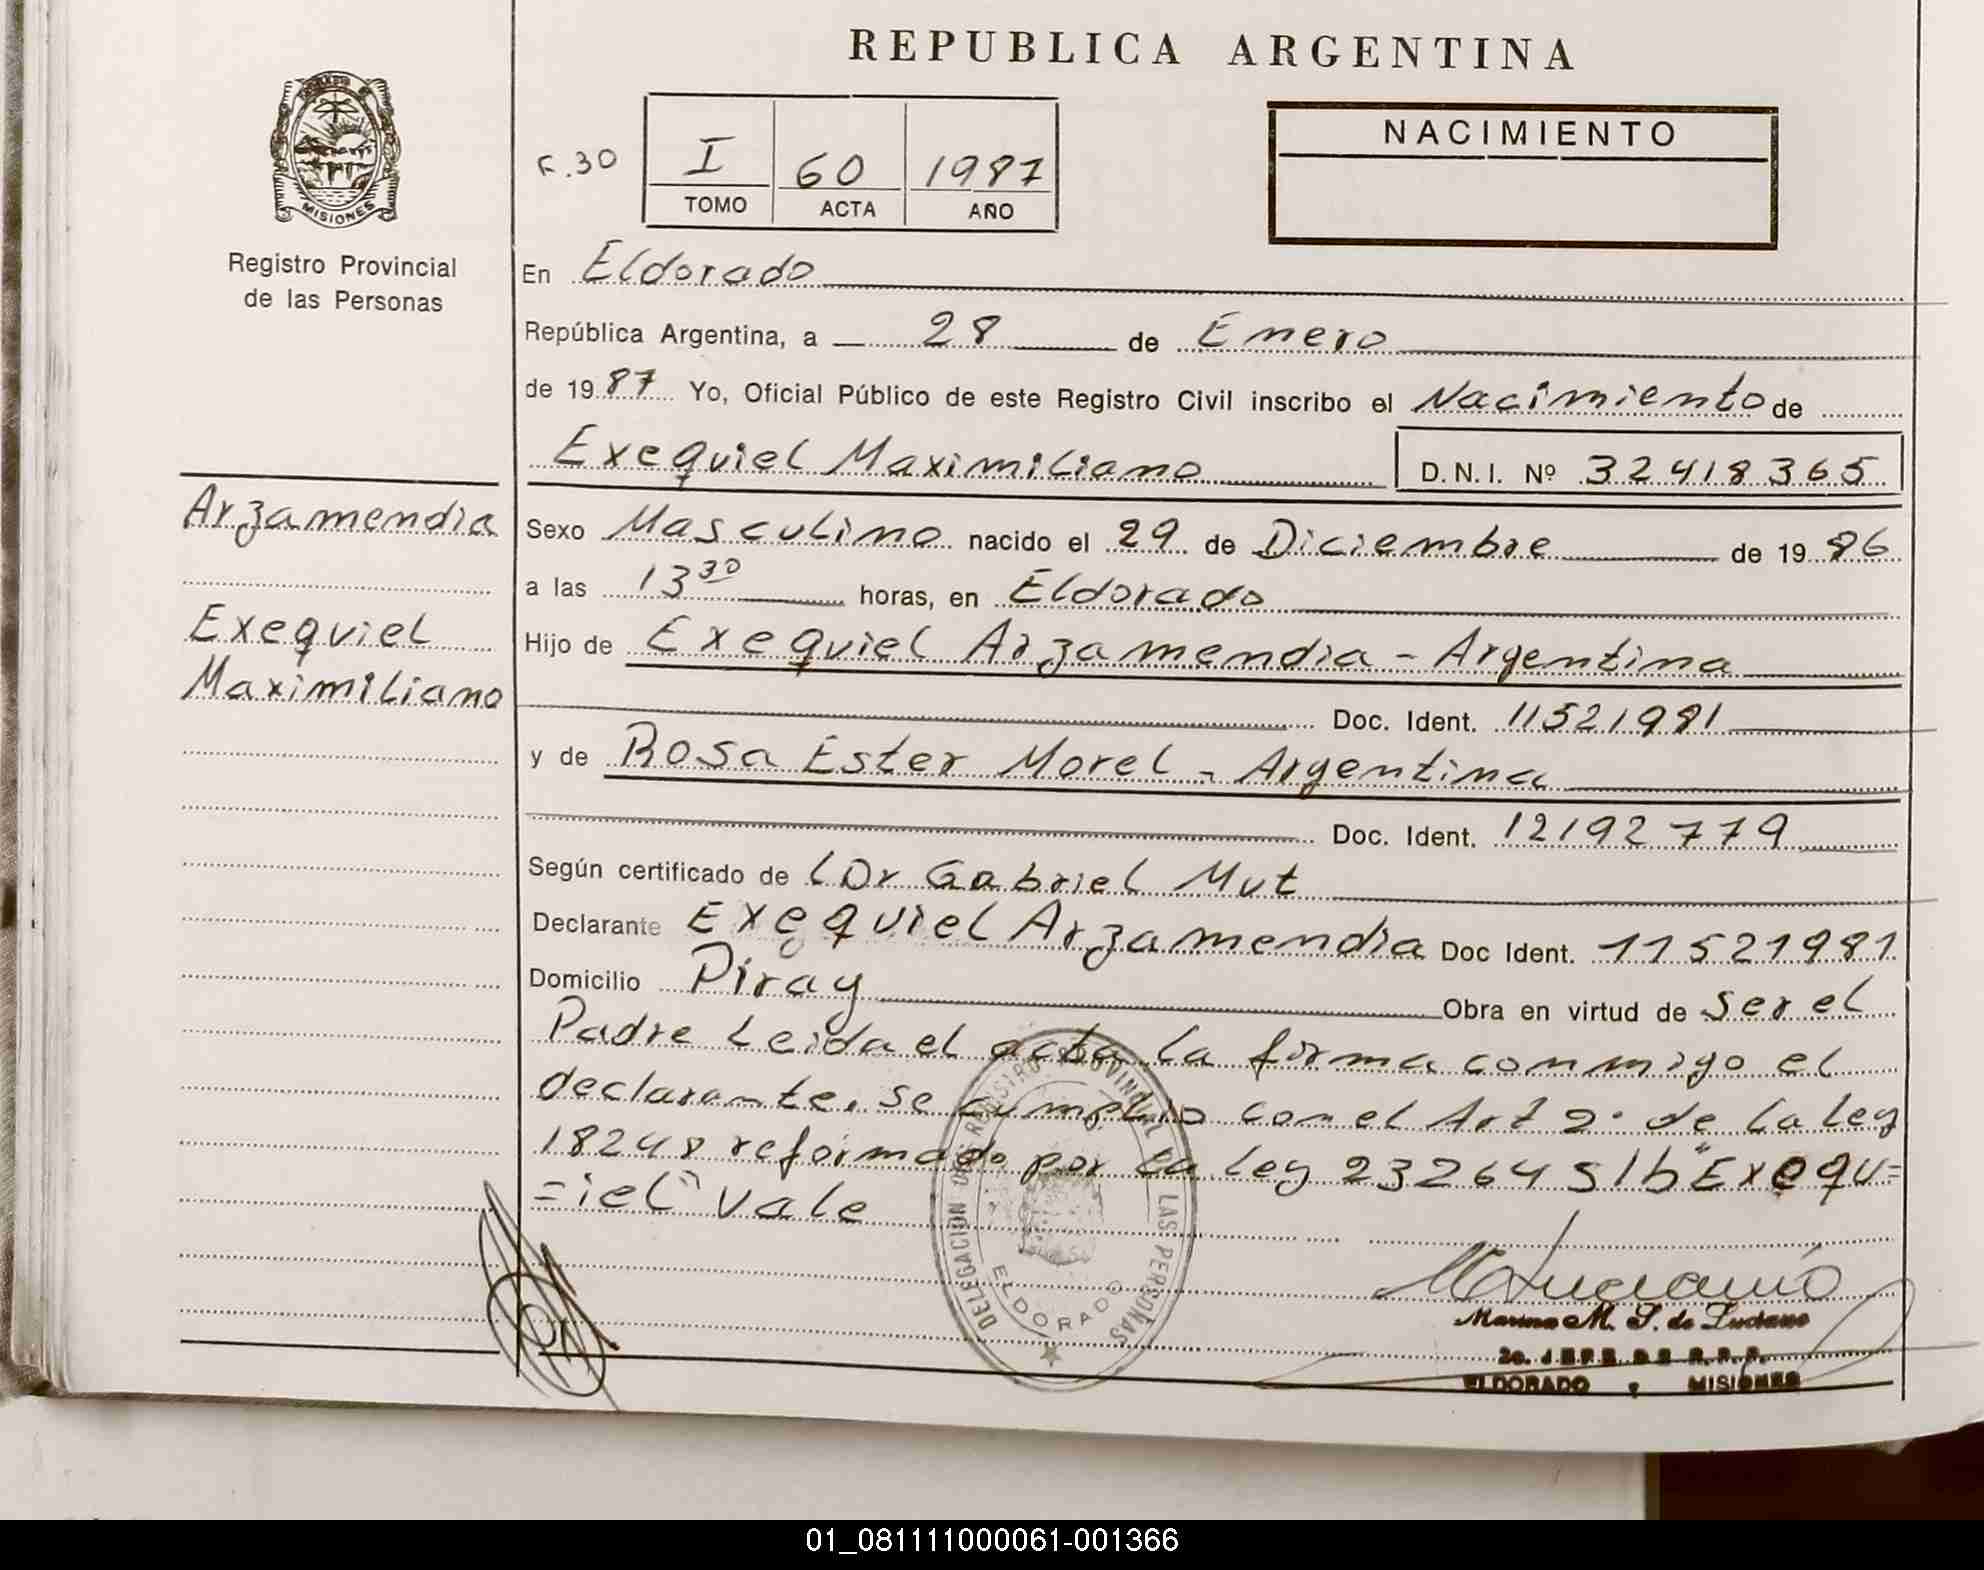 REPUBLICA ARGENTINA
MISIONES
Registro Provincial
de las Personas
F.30
I 60 1987
TOMO ACTA AÑO
NACIMIENTO
En Eldorado
República Argentina, a 28 de Enero
de 1987 Yo, Oficial Público de este Registro Civil inscribo el Nacimiento de
Exequiel Maximiliano D.N.I. Nº 32418365
Arzamendia
Exequiel
Maximiliano
Sexo Masculino nacido el 29 de Diciembre de 1986
a las 13 30 horas, en Eldorado
Hijo de Exequiel Arzamendia - Argentina
Doc. Ident. 11521981
y de Rosa Ester Morel - Argentina
Doc. Ident. 12192779
Según certificado de l Dr Gabriel Mut
Declarante Exequiel Arzamendia Doc Ident. 11521981
Domicilio Piray Obra en virtud de ser el
Padre Leida el acta la firma conmigo el
declarante. se cumplio con el Art 2° de la Ley
18248 reformado por la Ley 23264 S/b "Exequ=
=iel" Vale
DELEGACION DEL REGISTRO PROVINCIAL DE LAS PERSONAS
ELDORADO
Marina M. S. de Luciano
2o. JEFE DE R.P.P.
ELDORADO - MISIONES
01_081111000061-001366